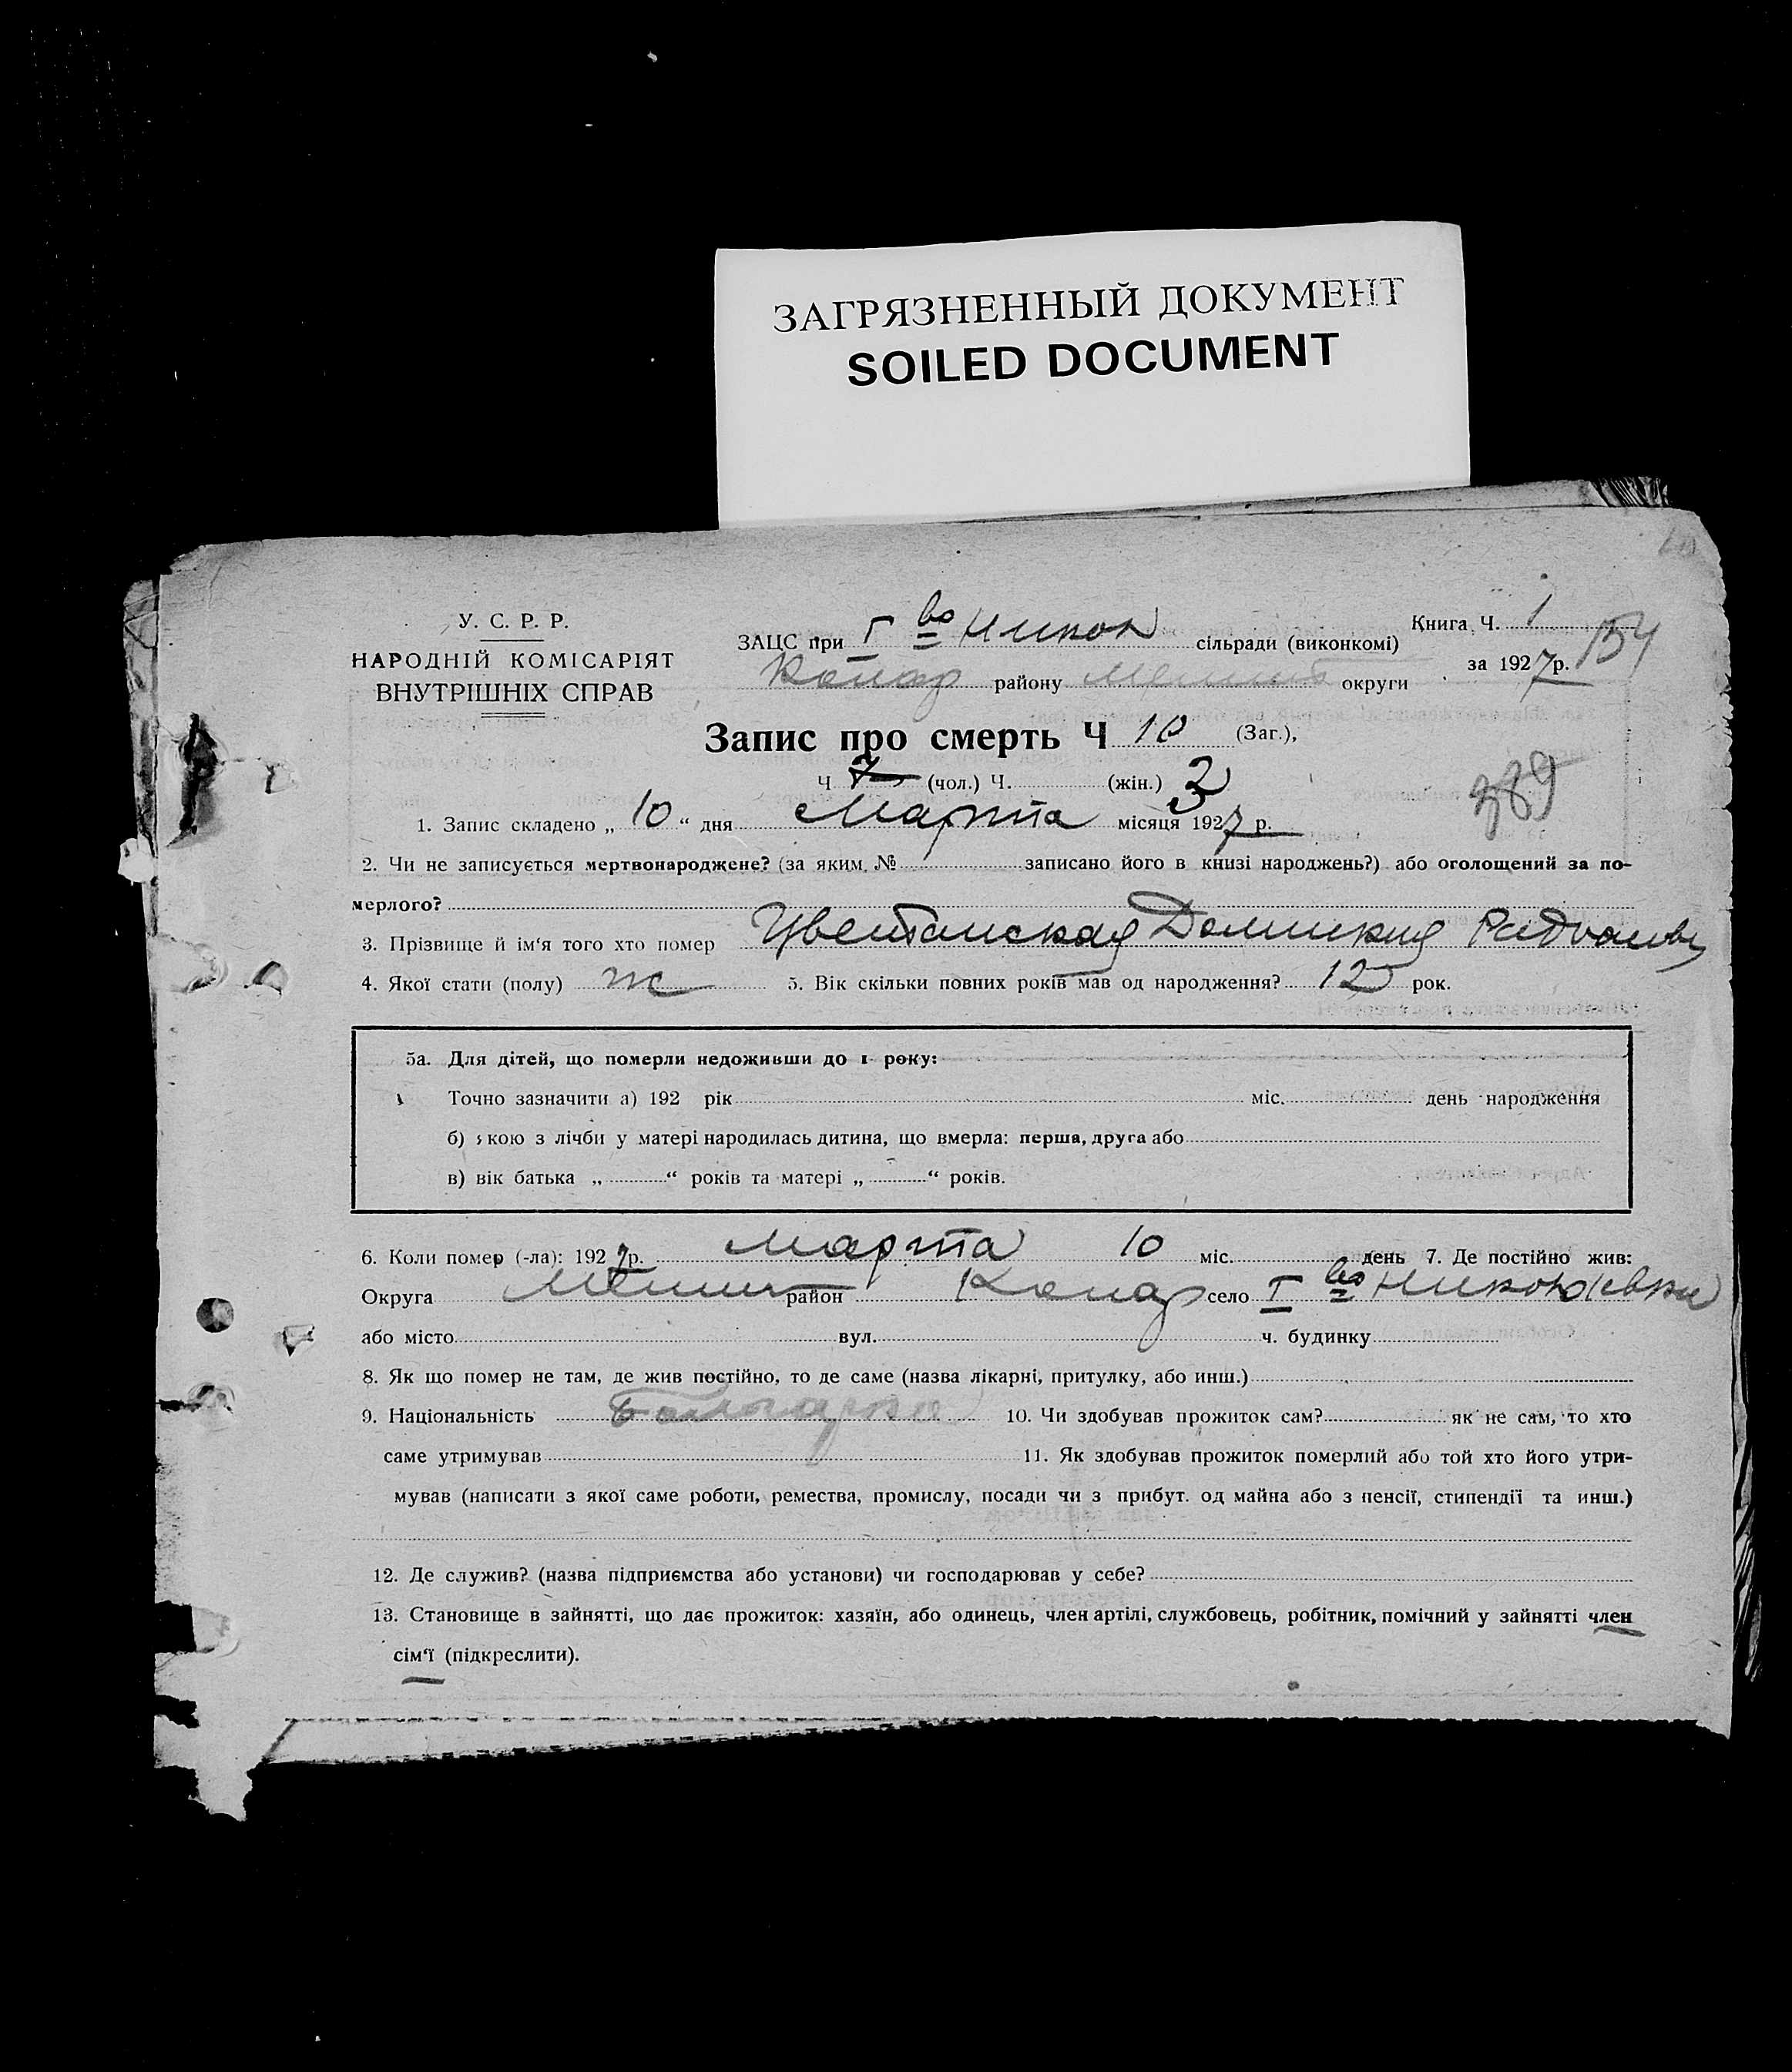 ЗАГРЯЗНЕННЫЙ ДОКУМЕНТ
SOILED DOCUMENT
У. С. Р. Р.
НАРОДНІЙ КОМІСАРІЯТ
ВНУТРІШНІХ СПРАВ
ЗАЦС при I во Никол сільради (виконкомі)
району округи
Книга Ч. 1
за 1927 р. 154
Запис про смерть Ч 10 (Заг.),
Ч 7 (чол.) Ч. (жін.) 3
389
1. Запис складено „ 10 “ дня Марта місяця 1927 р.
2. Чи не записується мертвонароджене? (за яким. № записано його в книзі народжень?) або оголощений за по-
мерлого?
3. Прізвище й ім‘я того хто помер Цветанская
4. Якої стати (полу) ж 5. Вік скільки повних років мав од народження? 12 рок.
5а. Для дітей, що померли недоживши до 1 року:
Точно зазначити а) 192 рік міс. день народження
б) якою з лічби у матері народилась дитина, що вмерла: перша, друга або
в) вік батька „ “ років та матері „ “ років.
6. Коли помер (-ла): 1927 р. Марта 10 міс. день 7. Де постійно жив:
Округа район село I во
або місто вул. ч. будинку
8. Як що помер не там, де жив постійно, то де саме (назва лікарні, притулку, або инш.)
9. Національність Болгарка 10. Чи здобував прожиток сам? як не сам, то хто
саме утримував 11. Як здобував прожиток померлий або той хто його утри-
мував (написати з якої саме роботи, ремества, промислу, посади чи з прибут. од майна або з пенсії, стипендії та инш.)
12. Де служив? (назва підприємства або установи) чи господарював у себе?
13. Становище в зайнятті, що дає прожиток: хазяїн, або одинець, член артілі, службовець, робітник, помічний у зайнятті член
сім‘ї (підкреслити).